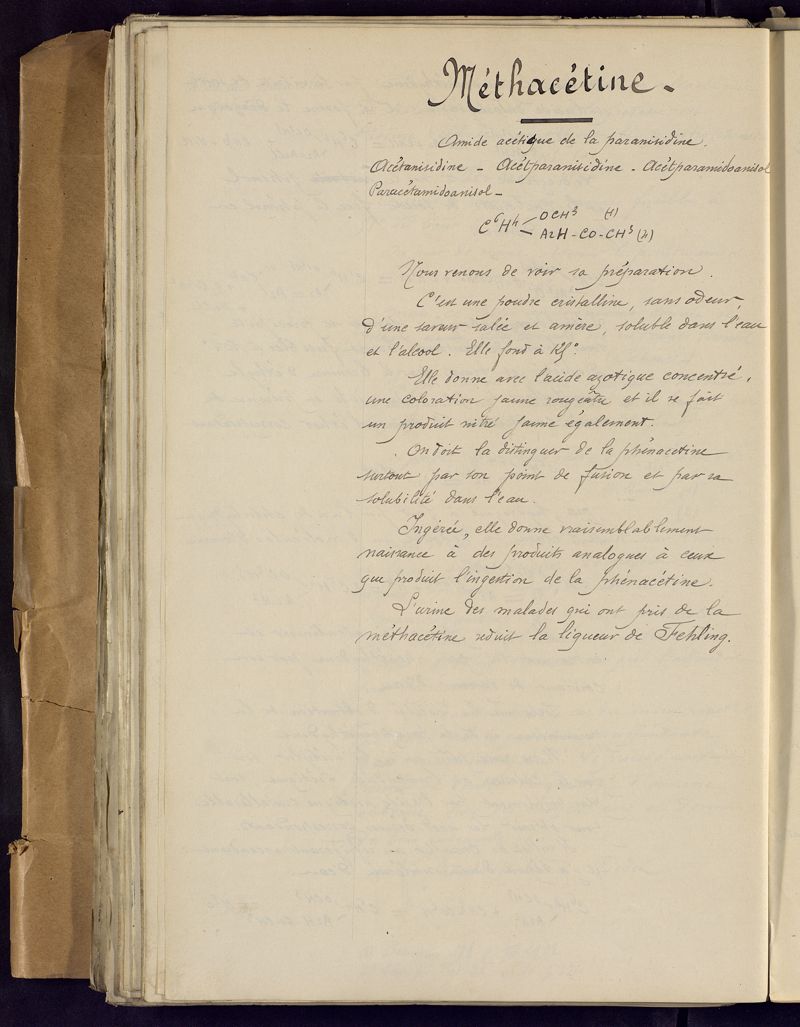 Méthacétine.
Amide acétique de la paranisidine.
Acétanisidine - Acétparanisidine - Acétparamidoanisol
Paracétamidoanisol -
C⁶H⁴ OCH³ (1)
AzH-CO-CH³ (4)
Nous venons de voir sa préparation.
C'est une poudre cristalline, sans odeur,
d'une saveur salée et amère, soluble dans l'eau
et l'alcool. Elle fond à
Elle donne avec l'acide azotique concentré,
une coloration jaune rougeâtre et il se fait
un produit nitré jaune également.
On doit la distinguer de la phénacétine
surtout par son point de fusion et par sa
solubilité dans l'eau.
Ingérée, elle donne vraisemblablement
naissance à des produits analogues à ceux
que produit l'ingestion de la phénacétine.
L'urine des malades qui ont pris de la
méthacétine réduit la liqueur de Fehling.